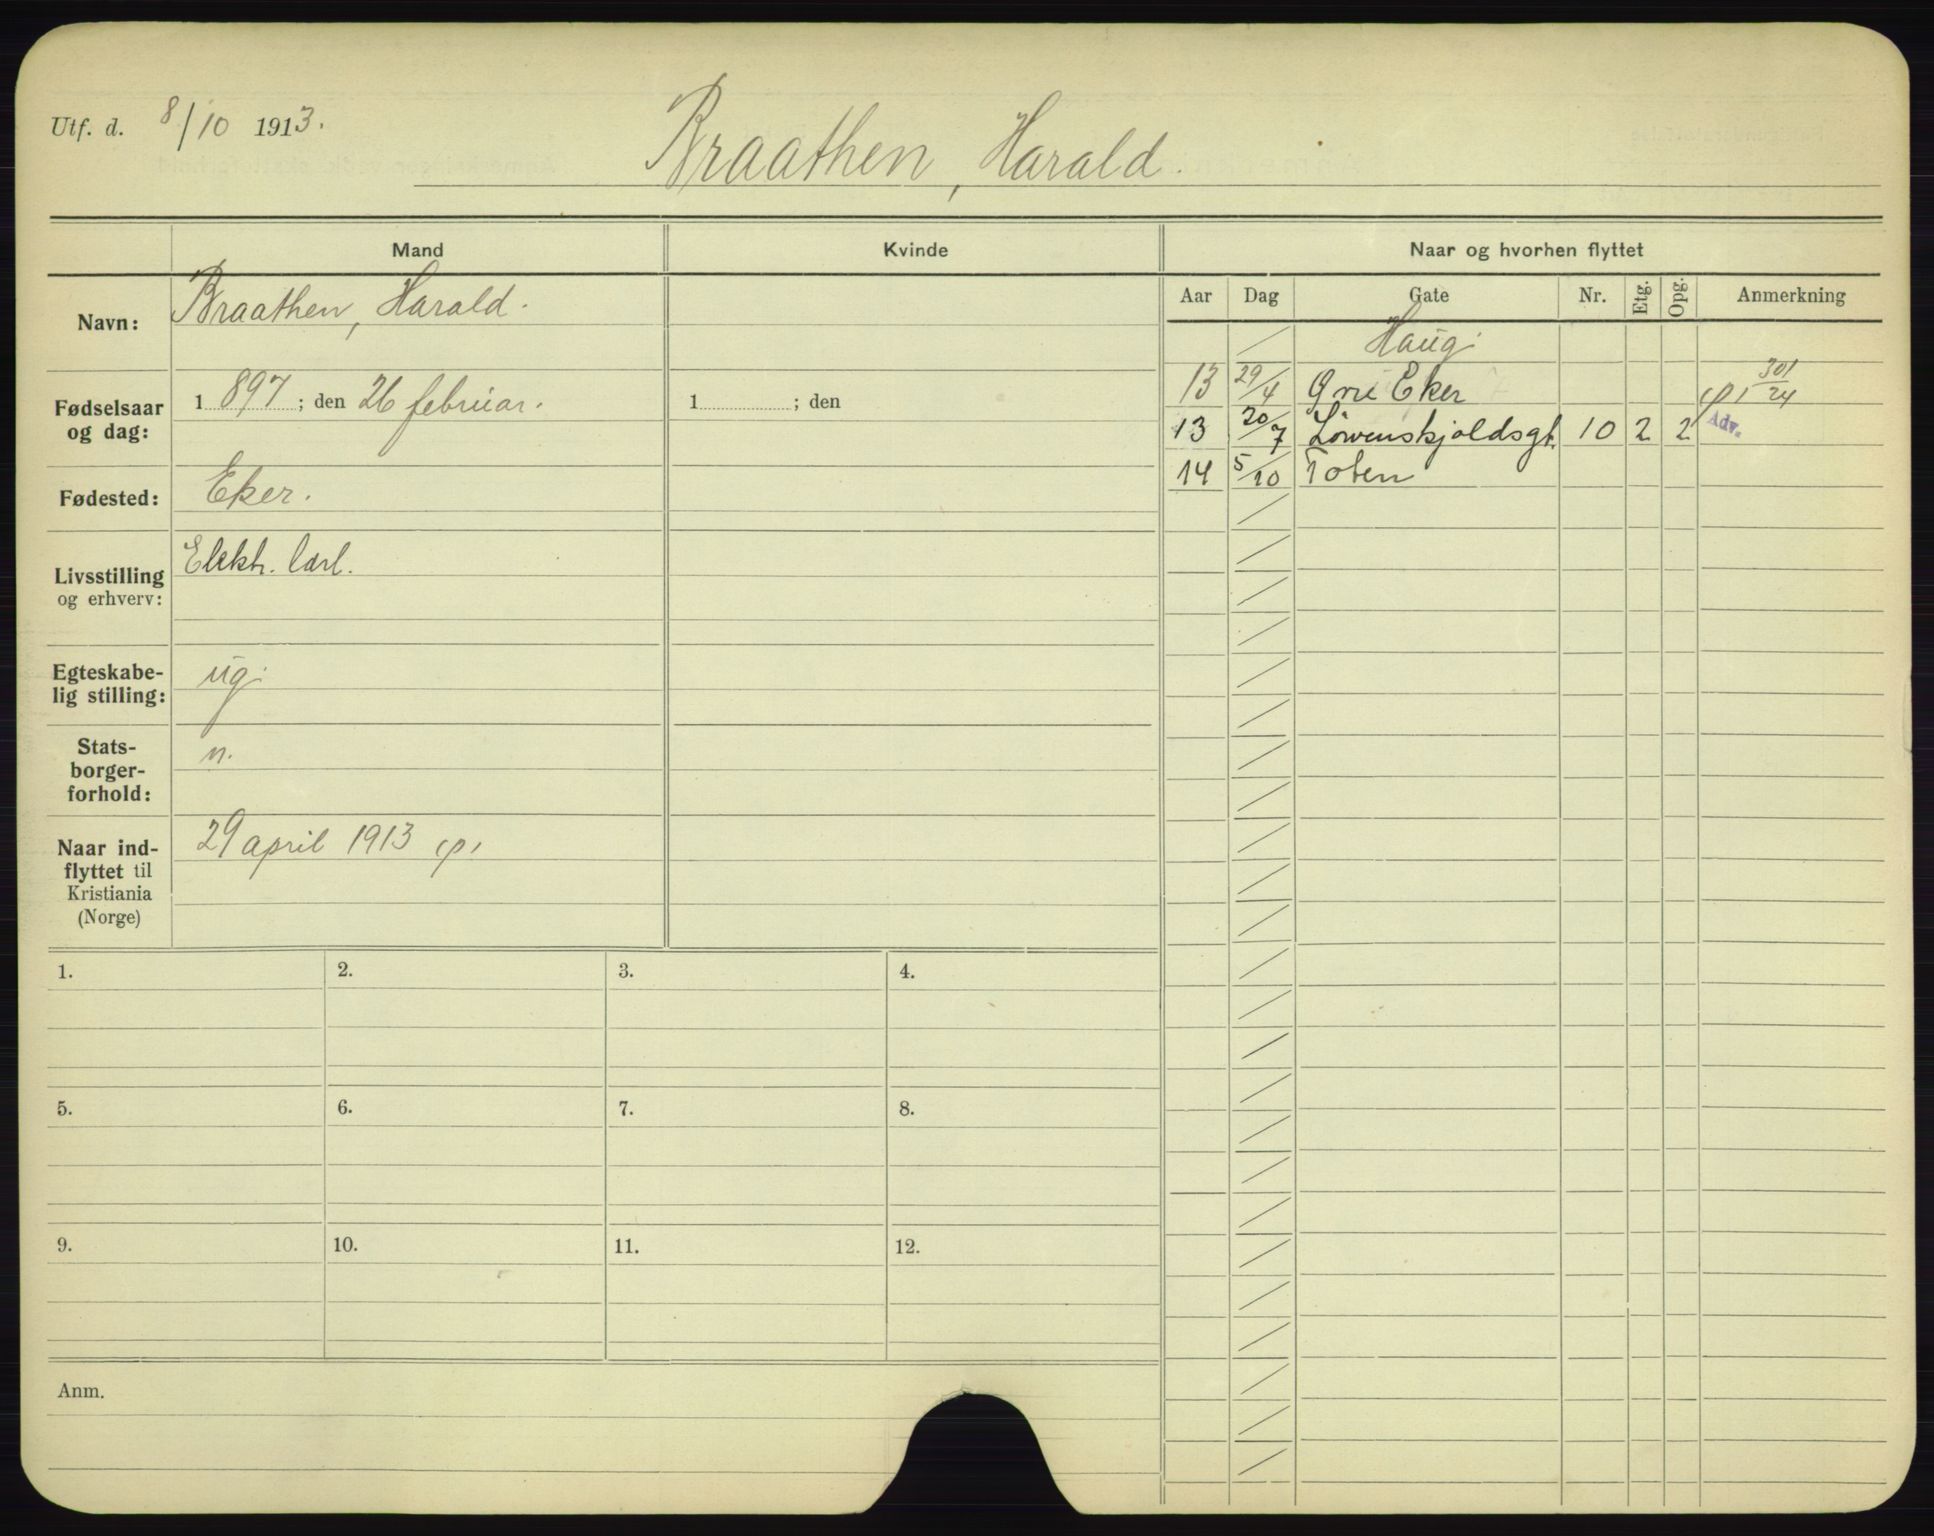 Utf. d. 8/10 1913.
Braathen, Harald.
Mand
Kvinde
Naar og hvorhen flyttet
Navn:
Braathen, Harald.
Fødselsaar og dag:
1897; den 26 februar.
1 ; den
Fødested:
Eker.
Livsstilling og erhverv:
Elektr. lærl.
Egteskabe-
lig stilling:
ug.
Stats-
borger-
forhold:
n.
Naar ind-
flyttet til
Kristiania
(Norge)
29 april 1913
Aar Dag Gate Nr. Etg. Opg. Anmerkning
Haug.
13 29/4 Øvre Eker 301/24
13 20/7 Løwenskjoldsgt. 10 2 2 Adv.
14 5/10 Toten
1. 2. 3. 4.
5. 6. 7. 8.
9. 10. 11. 12.
Anm.